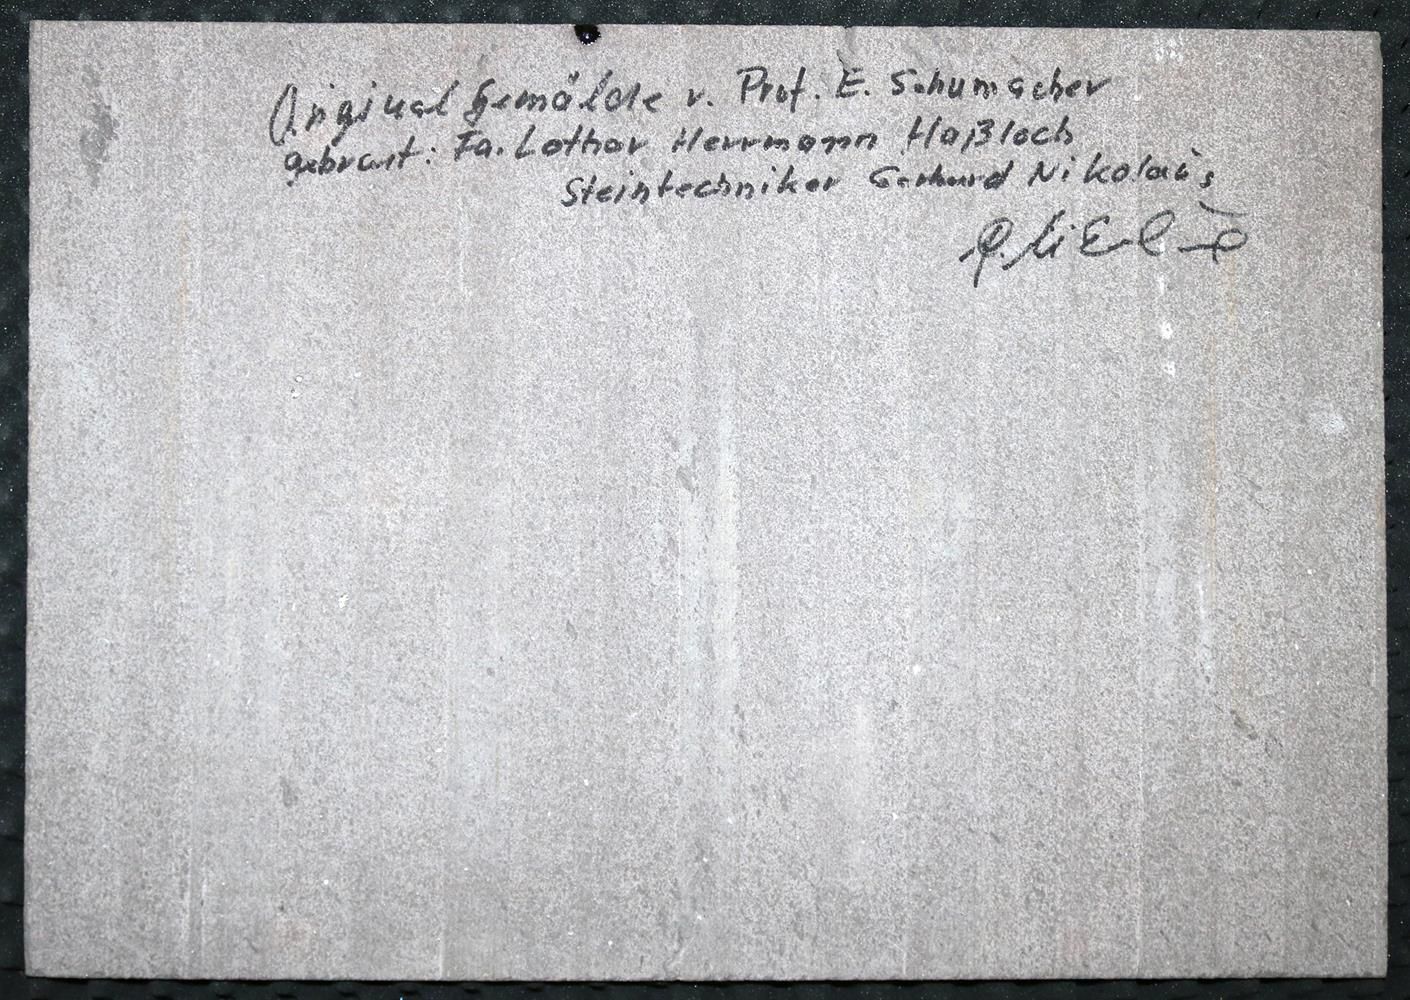 Original Gemälde v. Prof. E. Schumacher
gebrannt: Fa. Lothar Herrmann Haßloch
Steintechniker Gerhard Nikolaus